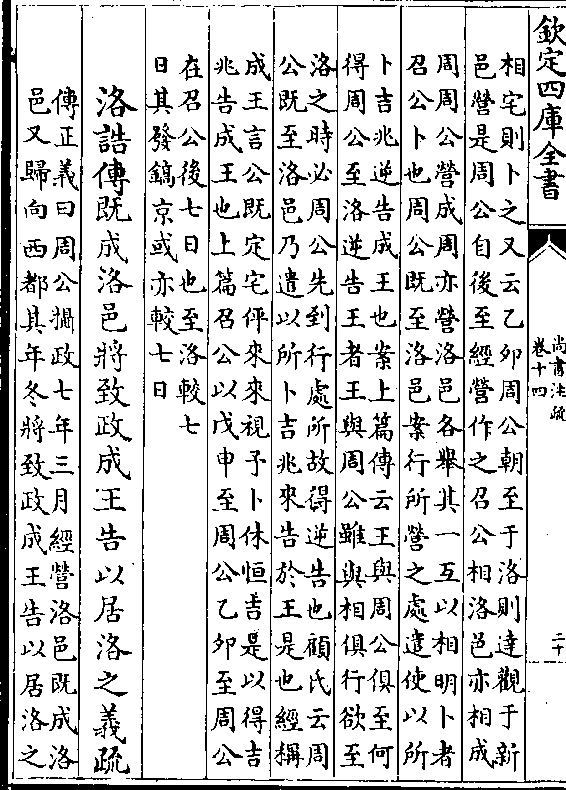 欽定四庫全書
尚書注疏
卷十四
二十
相宅則卜之又云乙卯周公朝至于洛則達觀于新
邑營是周公自後至經營作之召公相洛邑亦相成
周周公營成周亦營洛邑各舉其一互以相明卜者
召公卜也周公既至洛邑案行所營之處遣使以所
卜吉兆逆告成王也案上篇傳云王與周公俱至何
得周公至洛逆告王者王與周公雖與相俱行欲至
洛之時必周公先到行處所故得逆告也顧氏云周
公既至洛邑乃遣以所卜吉兆來告於王是也經稱
成王言公既定宅伻來來視予卜休恒吉是以得吉
兆告成王也上篇召公以戊申至周公乙卯至周公
在召公後七日也至洛較七
日其發鎬京或亦較七日
洛誥傳既成洛邑將致政成王告以居洛之義疏
傳正義曰周公攝政七年三月經營洛邑既成洛
邑又歸向西都其年冬將致政成王告以居洛之